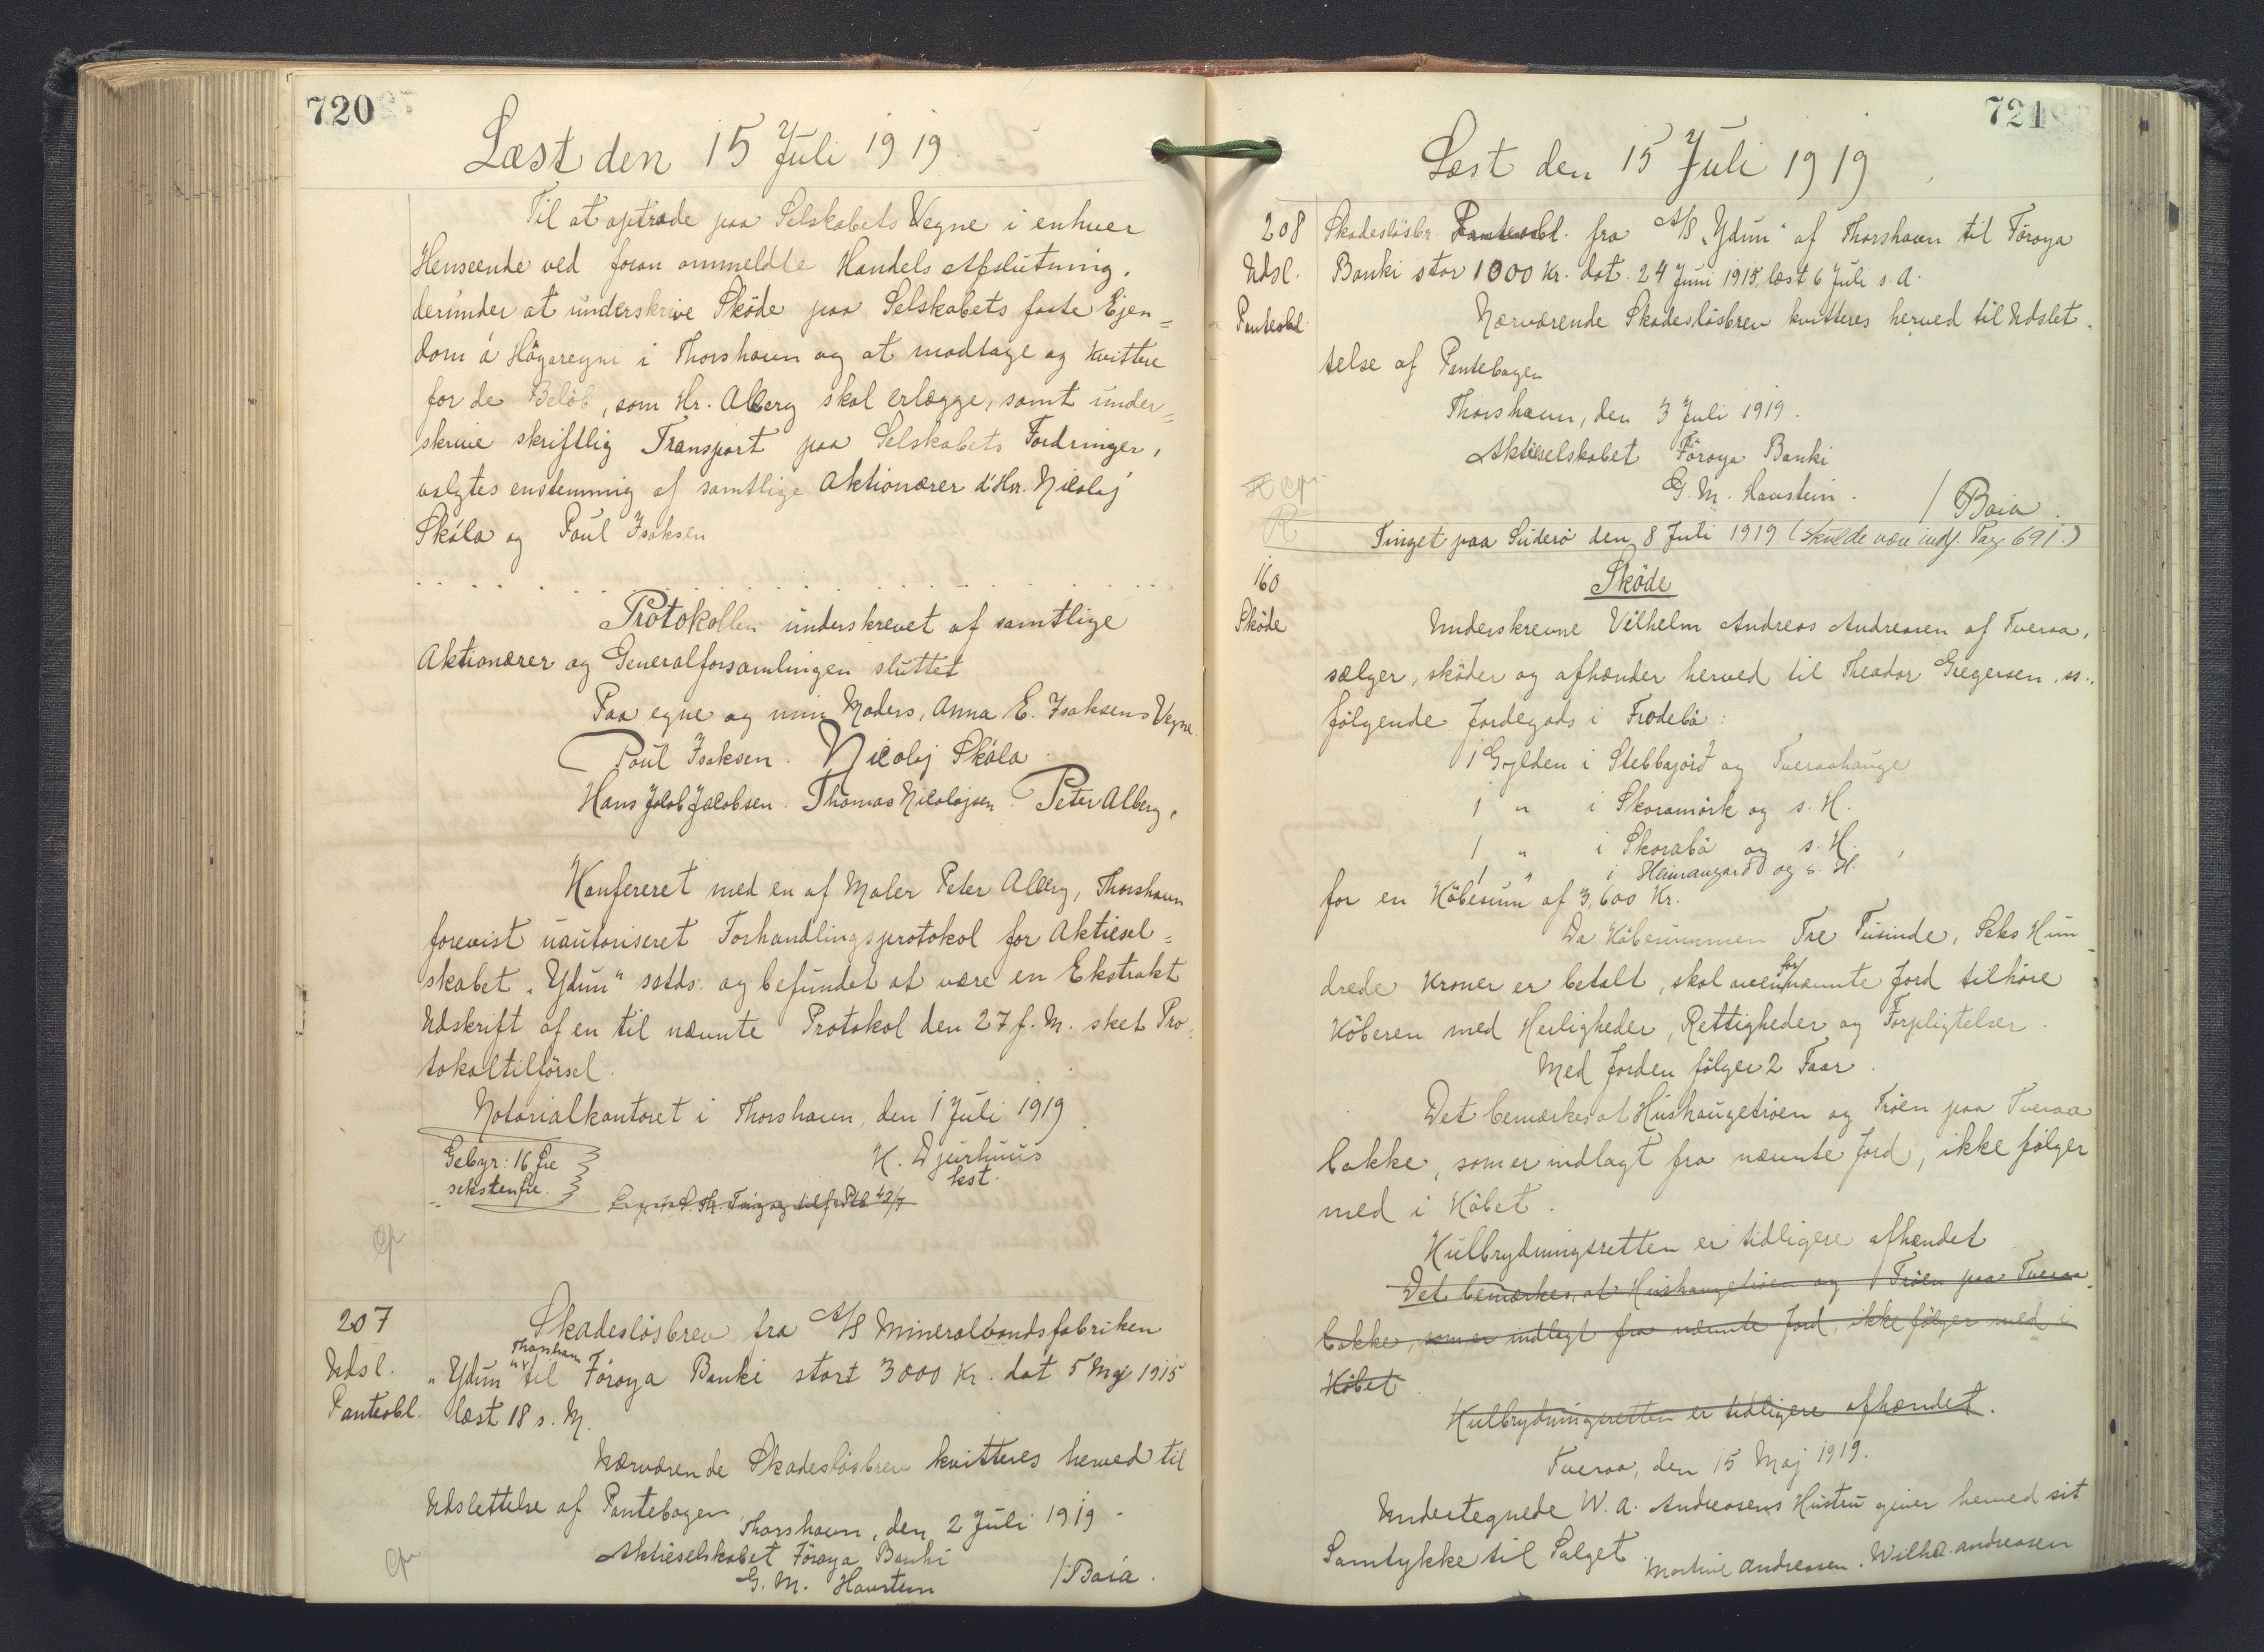 720
Læst den 15 Juli 1919.
Til at optræde paa Selskabets Vegne i enhver
Henseende ved foran ommeldte Handels Afslutning.
derunder at underskrive Sköde paa Selskabets faste Ejen=
dom á Högareyni i Thorshavn og at modtage og kvittere
for de Belöb, som Hr. Alberg skal erlægge, samt under=
skrive skriftlig Transport paa Selskabets Fordringer,
valgtes enstemmig af samtlige Aktionærer d'Hrr. Nicolaj
Skála og Poul Isaksen
Protokollen underskrevet af samtlige
Aktionærer og Generalforsamlingen sluttet
Paa egne og min Moders, Anna E. Isaksens Vegne.
Poul Isaksen. Nicolaj Skála.
Hans Jakob Jacobsen. Thomas Nicolajsen. Peter Alberg.
Konfereret med en af Maler Peter Alberg, Thorshavn
forevist uautoriseret Forhandlingsprotokol for Aktiesel=
skabet "Ydun" sstds. og befundet at være en Ekstrakt
Udskrift af en til nævnte Protokol den 27 f. M. sket Pro=
tokoltilförsel.
Notarialkontoret i Thorshavn, den 1 Juli 1919.
Gebyr: 16 Öre
H. Djurhuus
seksten Öre.
kst.
207
Skadeslösbrev fra A/S Mineralvandsfabriken
Thorshavn
Udsl. "Ydun" til Föroya Banki stort 3000 Kr. dat 5 Maj 1915
Panteobl. læst 18 s. M.
Nærværende Skadeslösbrev kvitteres herved til
Udslettelse af Pantebogen
Thorshavn, den 2 Juli 1919.
Aktieselskabet Föroya Banki
G. M. Haustein / Baia.
721
Læst den 15 Juli 1919
208 Skadeslösbr. Panteobl. fra A/S "Ydun" af Thorshavn til Föroya
Udsl. Banki stor 1000 Kr. dat. 24 Juni 1915, læst 6 Juli s. A.
Panteobl. Nærværende Skadeslösbrev kvitteres herved til Udslet=
telse af Pantebogen
Thorshavn, den 3 Juli 1919.
Aktieselskabet Föroya Banki
G. M. Haustein. / Baia.
Tinget paa Suderö den 8 Juli 1919 (skulde være indf. Pag 691.)
160
Sköde
Sköde Underskrevne Vilhelm Andreas Andreasen af Tveraa,
sælger, sköder og afhænder herved til Theodor Gregersen ss.,
fölgende Jordegods i Frodebö:
1 Gylden i Stebbajörd og Tveraahauge
1 " i Skoramörk og s. H.
1 " i Skorabö og s. H.
1 " i Heimangard og s. H.
for en Köbesum af 3,600 Kr.
Da Köbesummen Tre Tusinde, Seks Hun=
for
drede Kroner er betalt, skal ovennævnte Jord tilhöre
Köberen med Herligheder, Rettigheder og Forpligtelser.
Med Jorden fölger 2 Faar.
Det bemærkes at Hushaugetröen og Tröen paa Tveraa
bakke, som er indlagt fra nævnte Jord, ikke fölger
med i Köbet.
Kulbrydningsretten er tidligere afhændet
Det bemærkes, at Hushaugetröen og Tröen paa Tveraa
bakke, som er indlagt fra nævnte Jord, ikke fölger med i
Köbet.
Kulbrydningsretten er tidligere afhændet.
Tveraa, den 15 Maj 1919.
Undertegnede W. A. Andreasens Hustru giver herved sit
Samtykke til Salget. Martine Andreasen. Wilh. A. Andreasen